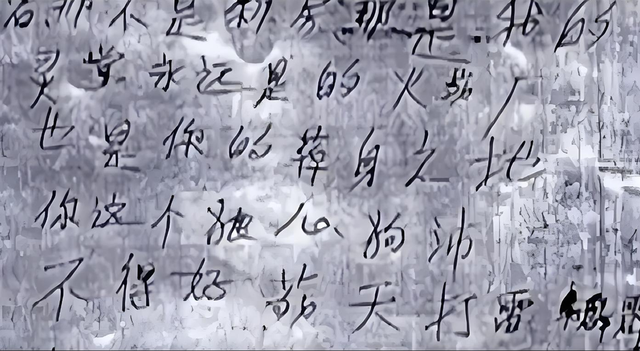 那不是新房那是..我的
灵堂永远是的火葬厂
也是你的葬身之地
你这个心狗沛
不得好天打雷